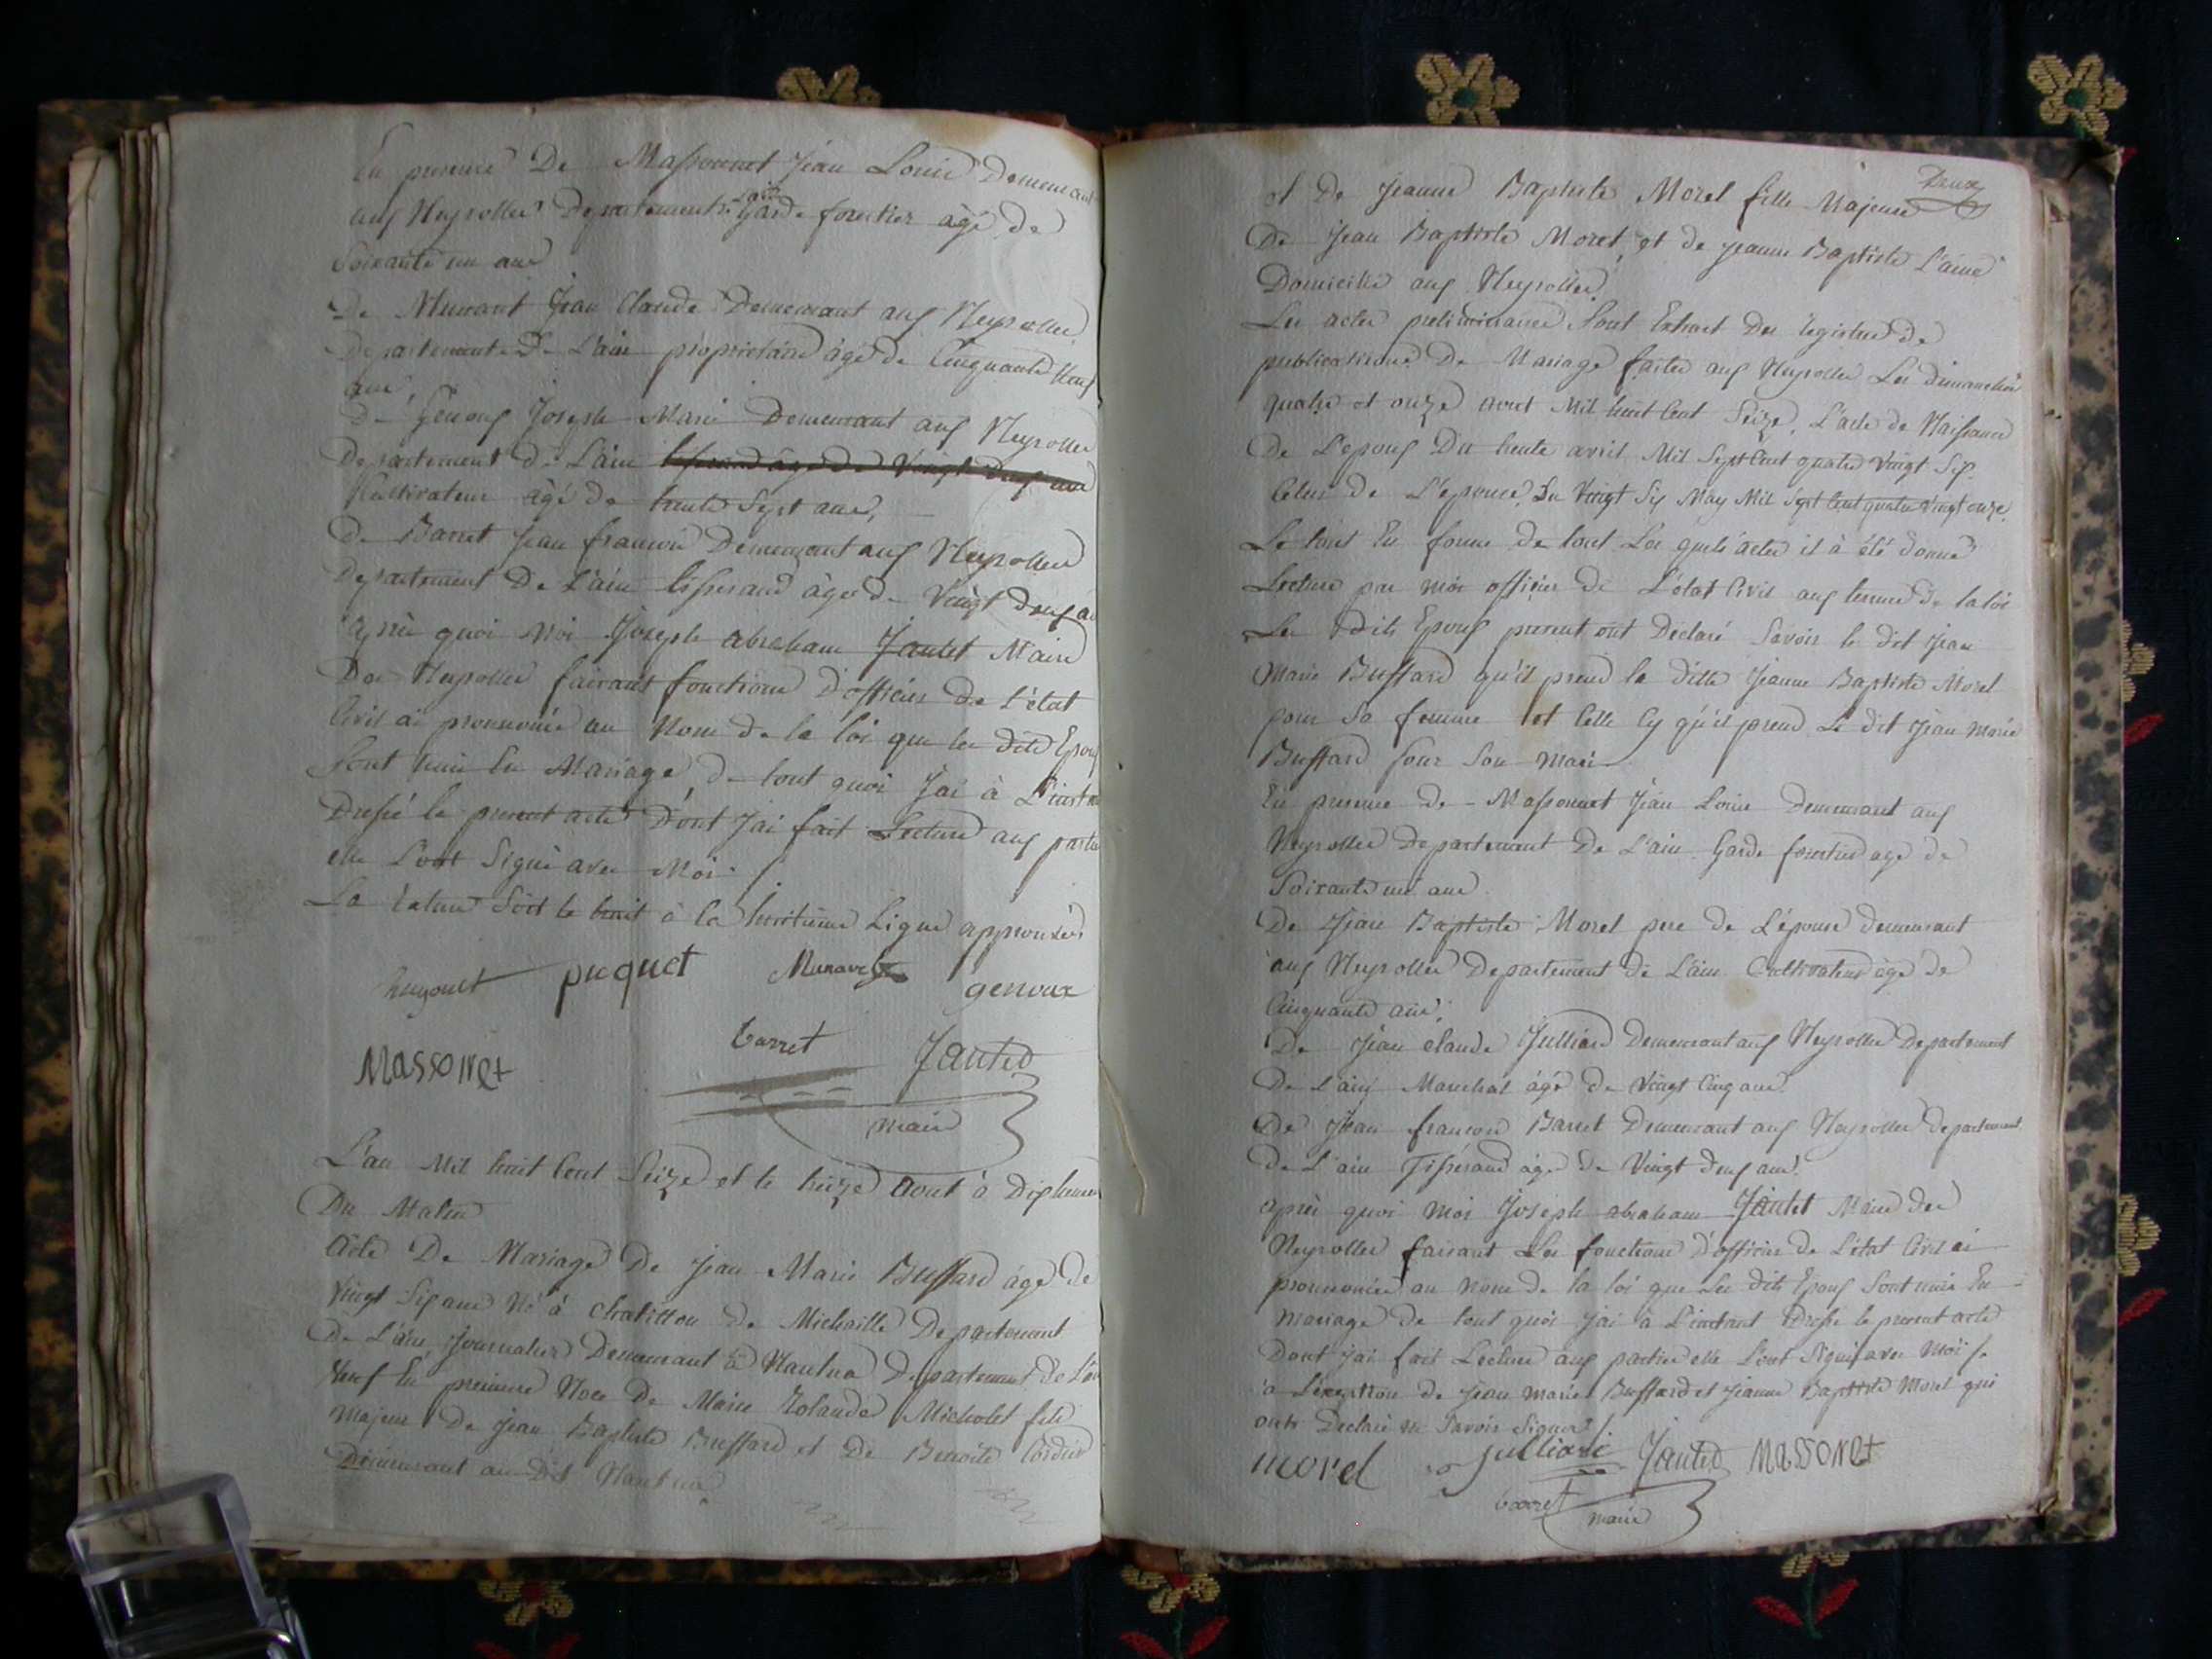 En presence De Massonnet Jean Louis Demeurant
aux Neyrolles Departement de L'ain Garde forestier âgé de
Soixante un ans
De Munavot Jean Claude Demeurant aux Neyrolles
Departement De L'ain propriétaire âgé de Cinquante neuf
ans
de Genoux Joseph Marie Demeurant aux Neyrolles
Departement de L'ain tisserand âgé de Vingt deux ans
Cultivateur âgé de trente Sept ans,
De Barret Jean francois Demeurant aux Neyrolles
Departement De L'ain tisserand âgé de Vingt deux ans
après quoi Moi Joseph abraham Jantet Maire
Des Neyrolles faisant fonctions D'officier de L'état
Civil ai prononcé au Nom de la loi que les dits Epoux
Sont unis En Mariage, de tout quoi J'ai à L'instant
Dressé le present acte Dont J'ai fait Lecture aux parties
elle L'ont Signé avec Moi.
La rature Soit le trait à la huitieme Ligne approuvée
hugonet puquet Munavot genoux
Massonet barret Jantet
maire
L'an Mil huit Cent Seize et le treize Aout à Dix heures
Du Matin
Acte De Mariage De Jean Marie Buffard âgé de
Vingt Six ans Né à Chatillon de Michaille Departement
De L'ain, Journalier Demeurant à Nantua Departement de L'ain
Veuf En premiere Noce de Marie Rolande Micholet fils
majeur De Jean Baptiste Buffard et De Benoite
Demeurant au Dit Nantua
Deux
et De Jeanne Baptiste Morel fille Majeure
De Jean Baptiste Morel, et de Jeanne Baptiste L'ainé
Domicilié aux Neyrolles,
Les actes preliminaires Sont Extrait Des registres de
publications De Mariage faites aux Neyrolles Les dimanches
quatre et onze aout Mil huit Cent Seize, L'acte de Naissance
De L'epoux Du trente avril Mil Sept Cent quatre Vingt Six
Celui de L'épouse, Du Vingt Six May Mil Sept Cent quatre Vingt onze
Le tout En forme de tout Les quels actes il à été donné
Lecture par moi officier de L'état Civil aux termes de la loi
Les dits Epoux present ont Déclaré Savoir le dit Jean
Marie Buffard qu'il prend la ditte Jeanne Baptiste Morel
pour Sa femme et Celle Cy qu'il prend Le dit Jean Marie
Buffard pour Son mari
En presence de Massonnet Jean Louis demeurant aux
Neyrolles Departement De L'ain Garde forestier age de
Soixante un ans
De Jean Baptiste Morel pere de L'épouse demeurant
aux Neyrolles Departement de L'ain Cultivateur âgé de
Cinquante ans,
De Jean Claude Julliard Demeurant aux Neyrolles Departement
De L'ain Marechal âgé de Vingt Cinq ans
De Jean francois Barret Demeurant aux Neyrolles departement
de L'ain Tisserand âgé de Vingt deux ans
après quoi moi Joseph abraham Jantet Maire des
Neyrolles faisant Les fonctions d'officier de L'état Civil ai
prononcés au Nom de la loi que Les dits Epoux Sont unis En
mariage de tout quoi j'ai à L'instant Dressé le present acte
Dont j'ai fait Lecture aux parties elle L'ont Signé avec Moi
à L'exeption de Jean marie Buffard et Jeanne Baptiste Morel qui
ont Declaré ne Savoir Signer
morel Julliard Jantet Massonet
barret maire